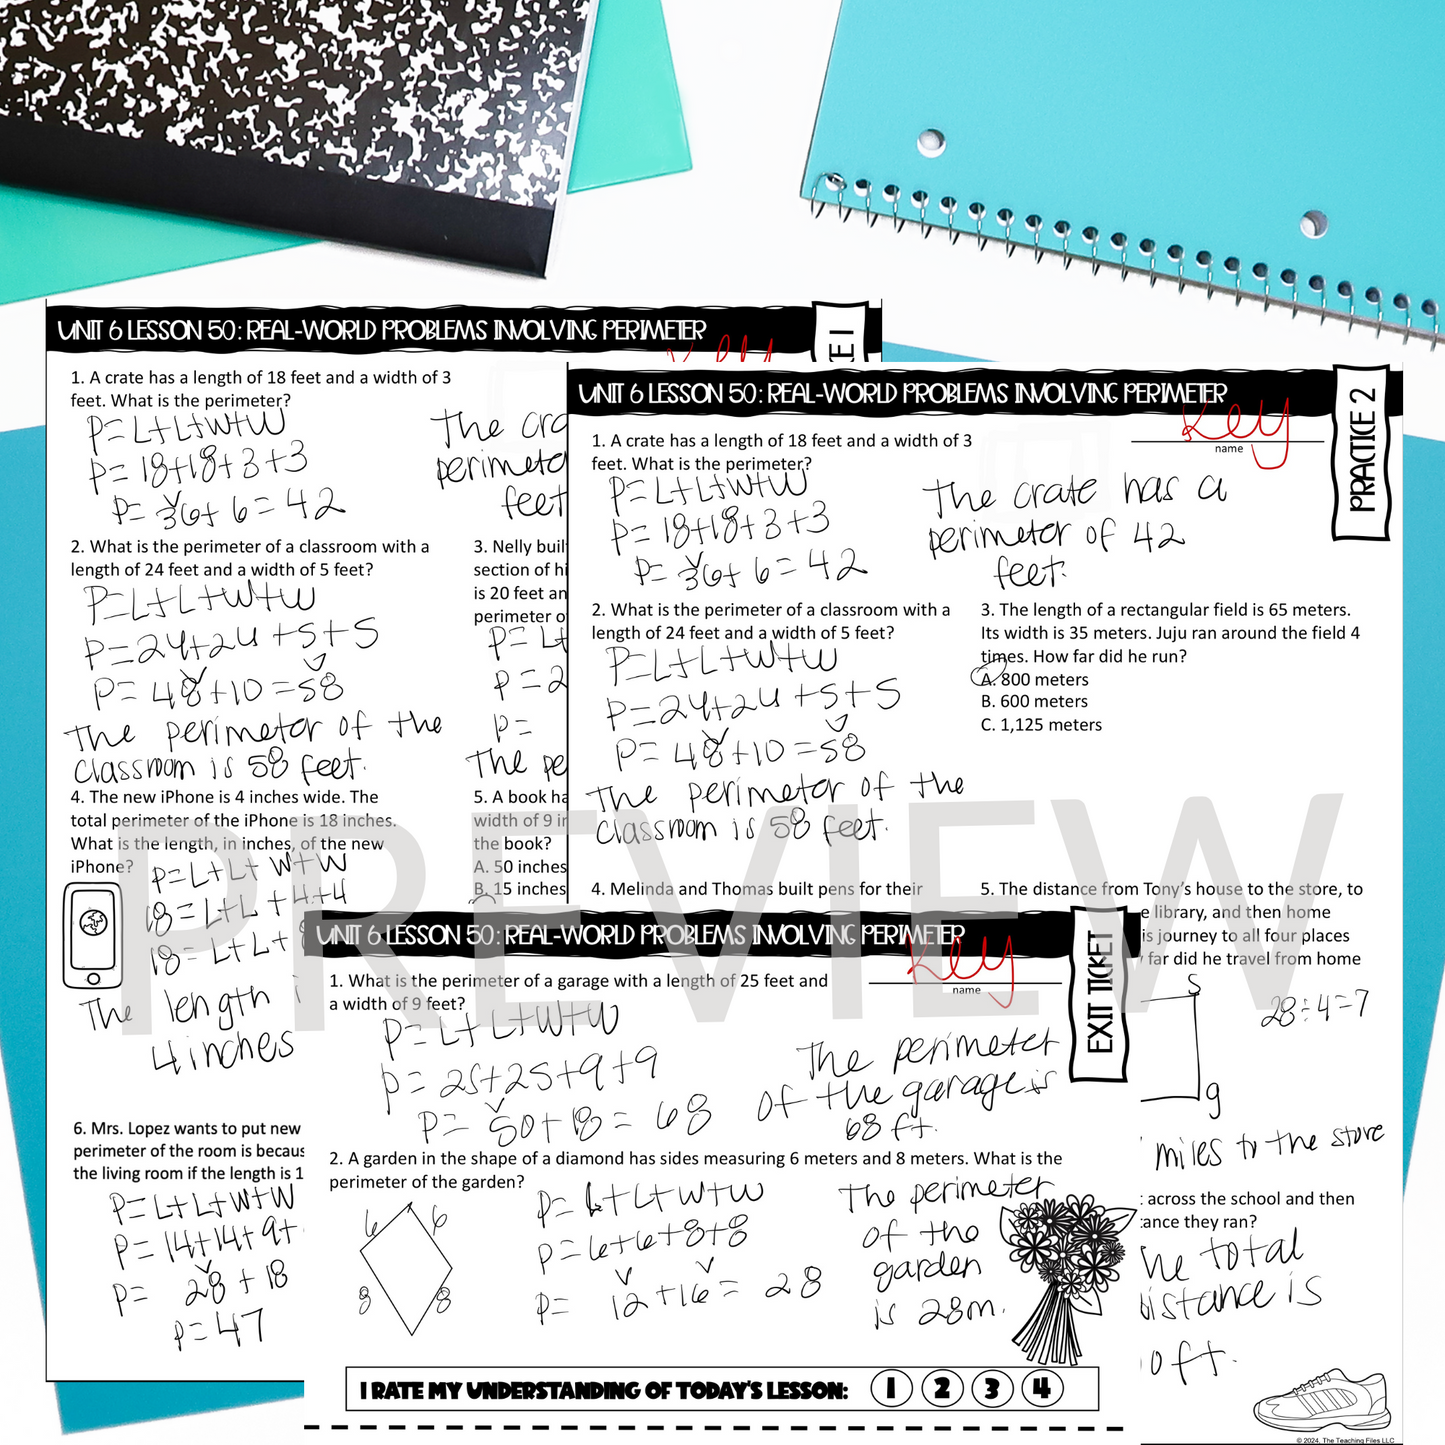 UNIT 6 LESSON 50: REAL-WORLD PROBLEMS INVOLVING PERIMETER
1. A crate has a length of 18 feet and a width of 3
feet. What is the perimeter?
P= L+L+W+W
P= 18+18+3+3
P= 36+ 6 = 42
The cra
perimete
feet
2. What is the perimeter of a classroom with a
length of 24 feet and a width of 5 feet?
P=L+L+W+W
P=24+24+5+5
P= 48+10=58
The perimeter of the
classroom is 58 feet.
3. Nelly buil
section of hi
is 20 feet an
perimeter o
P= L+
P=2
P=
The pe
4. The new iPhone is 4 inches wide. The
total perimeter of the iPhone is 18 inches.
What is the length, in inches, of the new
iPhone?
P=L+L+ W+W
18=L+L+4+4
18=L+L+
The length i
4 inches
5. A book ha
width of 9 in
the book?
A. 50 inches
B. 15 inches
6. Mrs. Lopez wants to put new
perimeter of the room is becaus
the living room if the length is 1
P= L+L+W+W
P= 14+14+9+
P= 28+18
P=47
UNIT 6 LESSON 50: REAL-WORLD PROBLEMS INVOLVING PERIMETER
PRACTICE 2
Key
name
1. A crate has a length of 18 feet and a width of 3
feet. What is the perimeter?
P=L+L+W+W
P= 18+18+3+3
P= 36+ 6=42
The crate has a
perimeter of 42
feet.
2. What is the perimeter of a classroom with a
length of 24 feet and a width of 5 feet?
P=L+L+W+W
P=24+24+5+5
P= 48+10=58
The perimeter of the
classroom is 58 feet.
3. The length of a rectangular field is 65 meters.
Its width is 35 meters. Juju ran around the field 4
times. How far did he run?
A. 800 meters
B. 600 meters
C. 1,125 meters
4. Melinda and Thomas built pens for their
5. The distance from Tony's house to the store, to
e library, and then home
is journey to all four places
far did he travel from home
S
28÷4=7
g
miles to the store
across the school and then
tance they ran?
he total
distance is
0ft.
© 2024, The Teaching Files LLC
UNIT 6 LESSON 50: REAL-WORLD PROBLEMS INVOLVING PERIMETER
EXIT TICKET
Key
name
1. What is the perimeter of a garage with a length of 25 feet and
a width of 9 feet?
P= L+L+W+W
P= 25+25+9+9
P= 50+18= 68
The perimeter
of the garage is
68 ft.
2. A garden in the shape of a diamond has sides measuring 6 meters and 8 meters. What is the
perimeter of the garden?
6 6
8 8
P= L+L+W+W
P=6+6+8+8
P= 12+16= 28
The perimeter
of the
garden
is 28m.
I RATE MY UNDERSTANDING OF TODAY'S LESSON: 1 2 3 4
PREVIEW